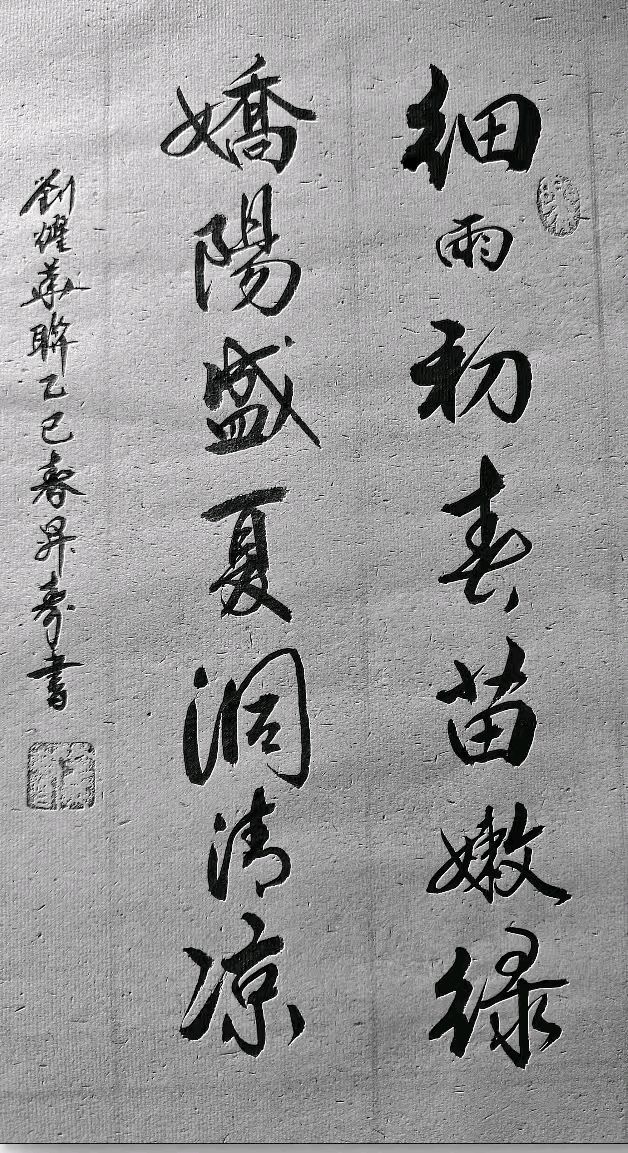 細雨初春苗嫩綠
嬌陽盛夏洞清凉
劉耀華聯乙巳春昇壽書